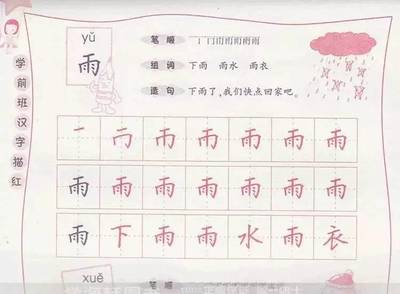 学前班汉字描红
yǔ
雨
笔顺
组词 下雨 雨水 雨衣
造句 下雨了,我们快点回家吧。
一 雨 雨 雨 雨
雨 雨 雨 雨 雨 雨 雨
雨 下 雨 雨 水 雨 衣
xuě
笔顺